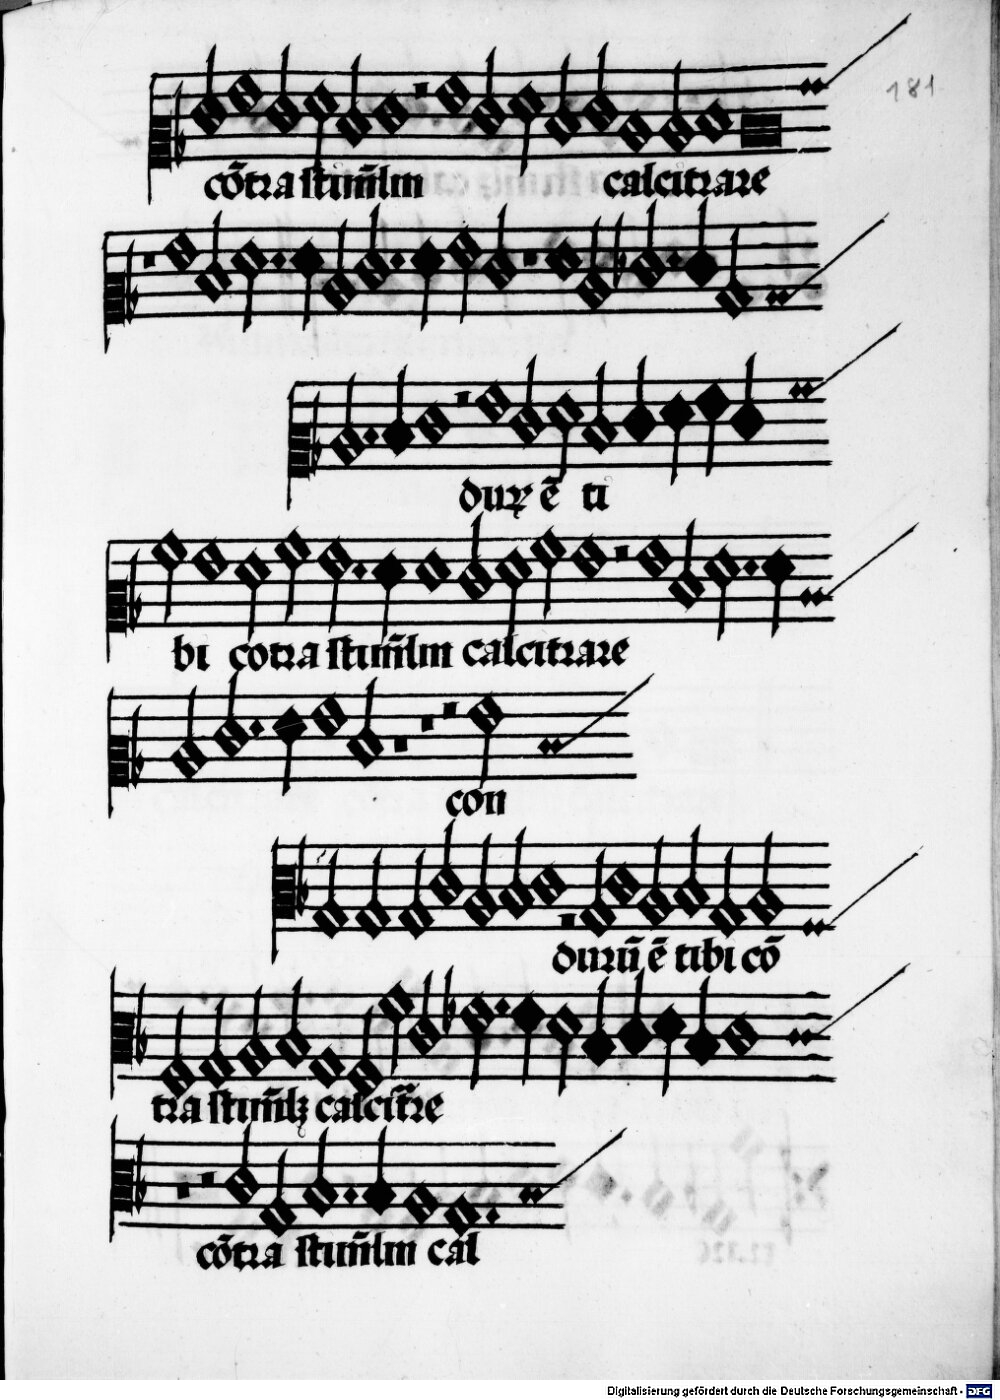 181
cõtra stim̃lm calcitrare
duꝝ ẽ ti
bi cotra stim̃lm calcitrare
con
durũ ẽ tibi cõ
tra stim̃lꝫ calcit̃re
cõtra stim̃lm cal
Digitalisierung gefördert durch die Deutsche Forschungsgemeinschaft - DFG